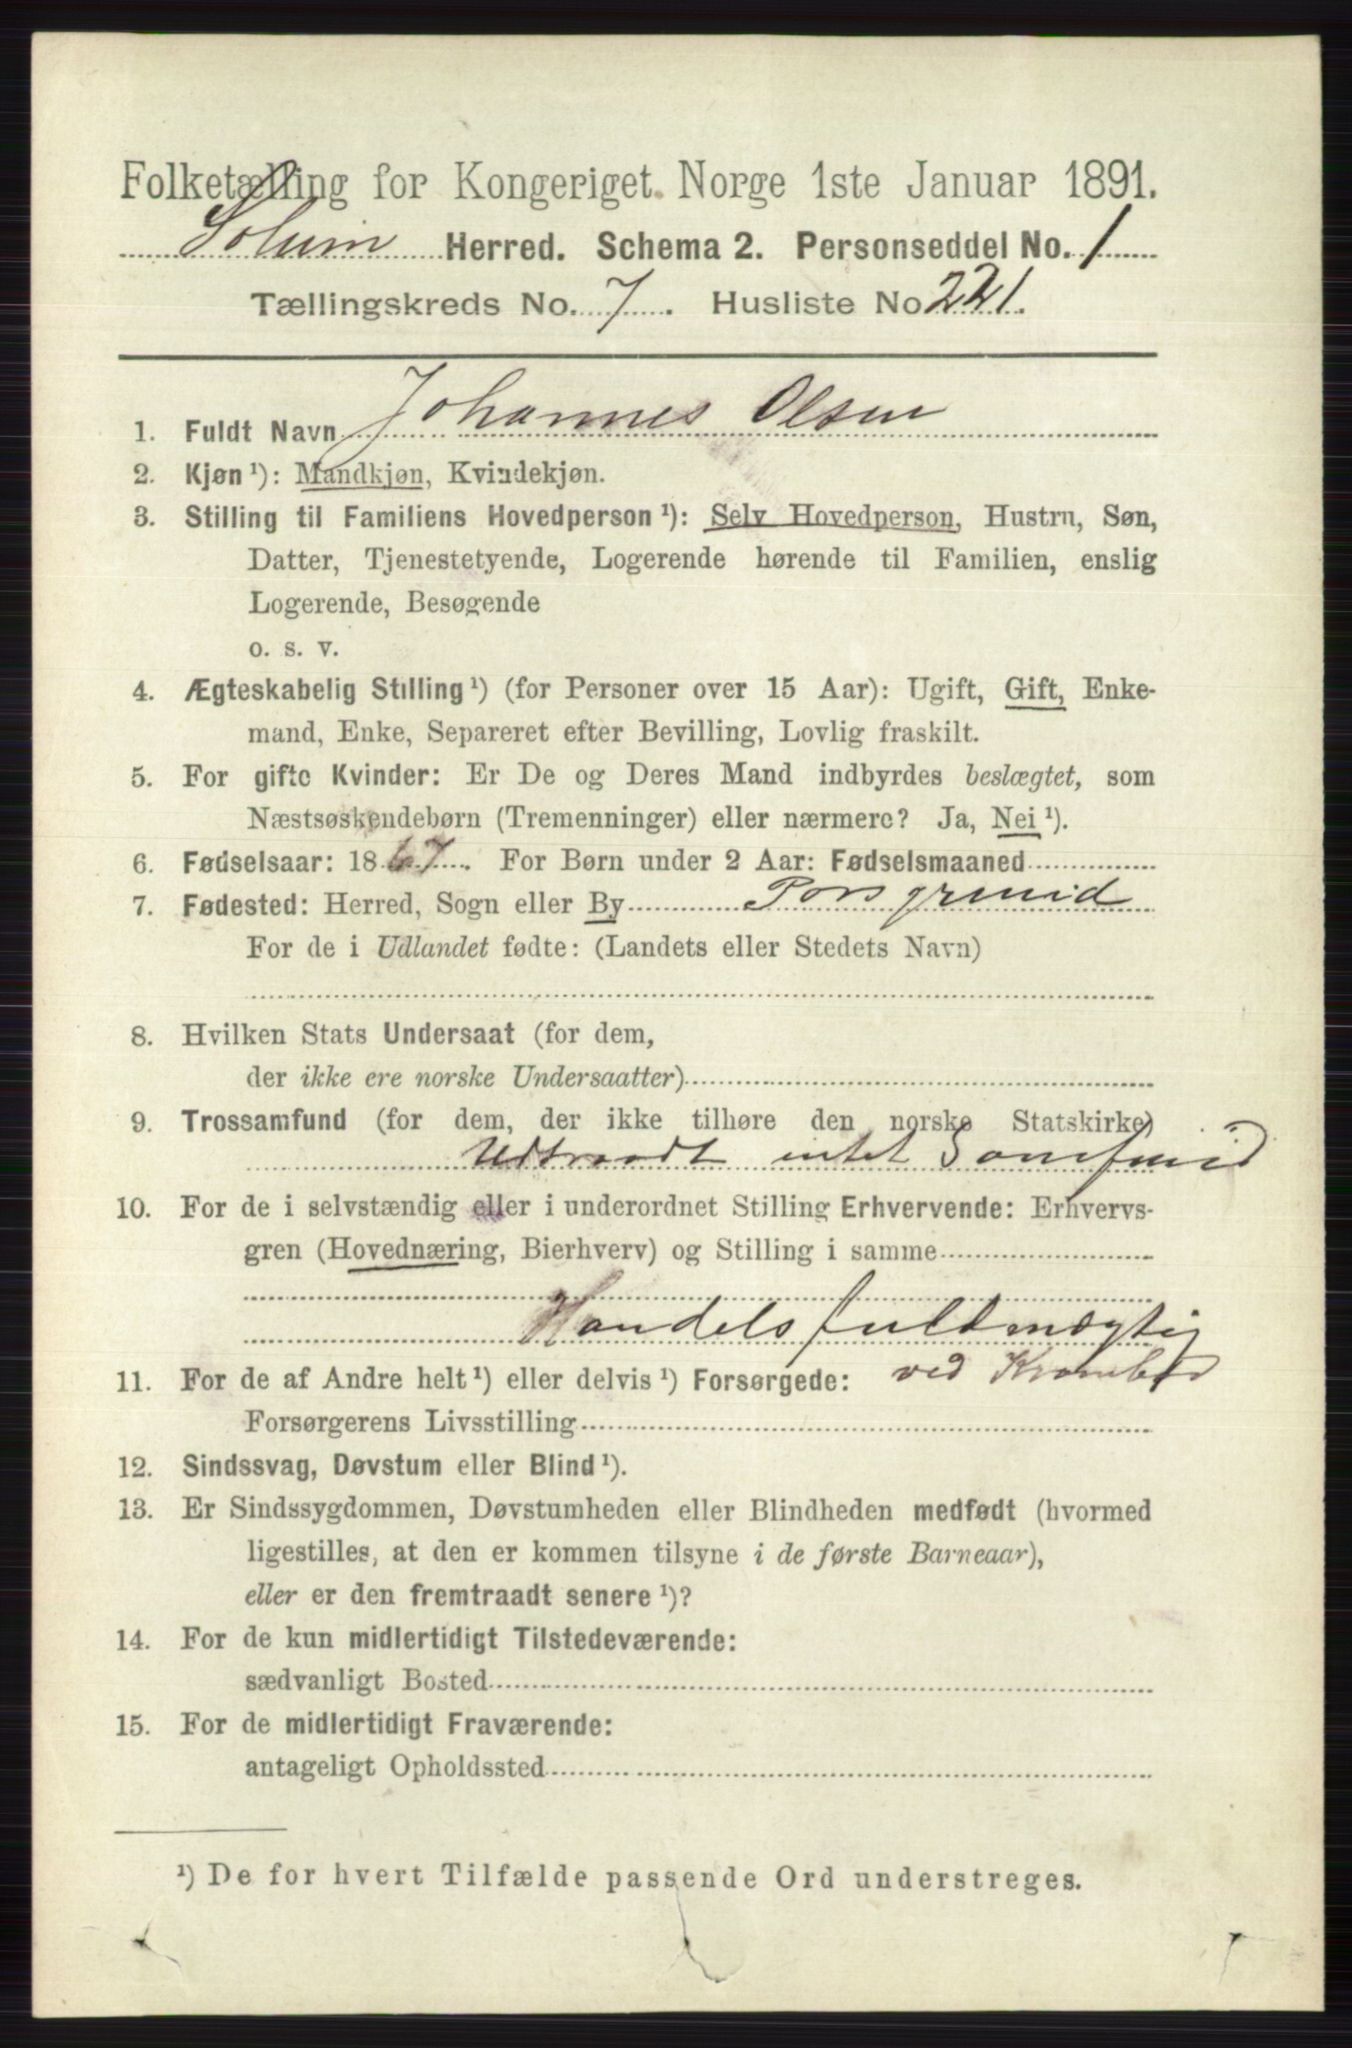 Folketælling for Kongeriget Norge 1ste Januar 1891.
Solum Herred. Schema 2. Personseddel No. 1
Tællingskreds No. 7. Husliste No 221.
1. Fuldt Navn Johannes Olsen
2. Kjøn¹): Mandkjøn, Kvindekjøn.
3. Stilling til Familiens Hovedperson¹): Selv Hovedperson, Hustru, Søn,
Datter, Tjenestetyende, Logerende hørende til Familien, enslig
Logerende, Besøgende
o. s. v.
4. Ægteskabelig Stilling¹) (for Personer over 15 Aar): Ugift, Gift, Enke-
mand, Enke, Separeret efter Bevilling, Lovlig fraskilt.
5. For gifte Kvinder: Er De og Deres Mand indbyrdes beslægtet, som
Næstsøskendebørn (Tremenninger) eller nærmere? Ja, Nei¹).
6. Fødselsaar: 1867. For Børn under 2 Aar: Fødselsmaaned
7. Fødested: Herred, Sogn eller By Porsgrund
For de i Udlandet fødte: (Landets eller Stedets Navn)
8. Hvilken Stats Undersaat (for dem,
der ikke ere norske Undersaatter)
9. Trossamfund (for dem, der ikke tilhøre den norske Statskirke)
Udtraadt intet Samfund
10. For de i selvstændig eller i underordnet Stilling Erhvervende: Erhvervs-
gren (Hovednæring, Bierhverv) og Stilling i samme
Handelsfuldmægtig
ved Krambod
11. For de af Andre helt¹) eller delvis¹) Forsørgede:
Forsørgerens Livsstilling
12. Sindssvag, Døvstum eller Blind¹).
13. Er Sindssygdommen, Døvstumheden eller Blindheden medfødt (hvormed
ligestilles, at den er kommen tilsyne i de første Barneaar),
eller er den fremtraadt senere¹)?
14. For de kun midlertidigt Tilstedeværende:
sædvanligt Bosted
15. For de midlertidigt Fraværende:
antageligt Opholdssted
¹) De for hvert Tilfælde passende Ord understreges.